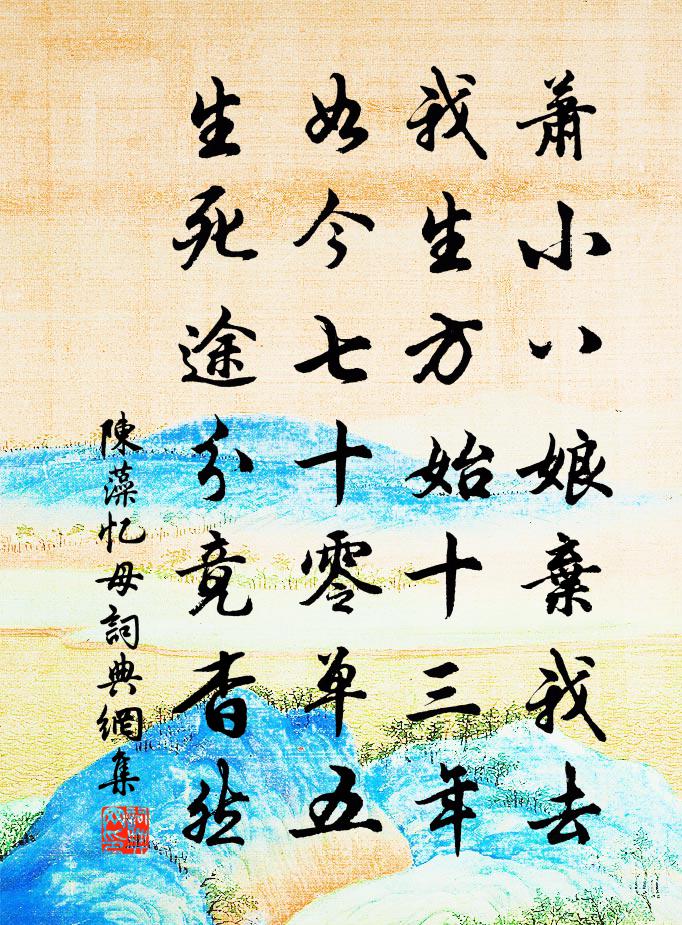 蕭小八娘棄我去
我生方始十三年
如今七十零單五
生死途分竟杳然
陳藻忆母詞典網集